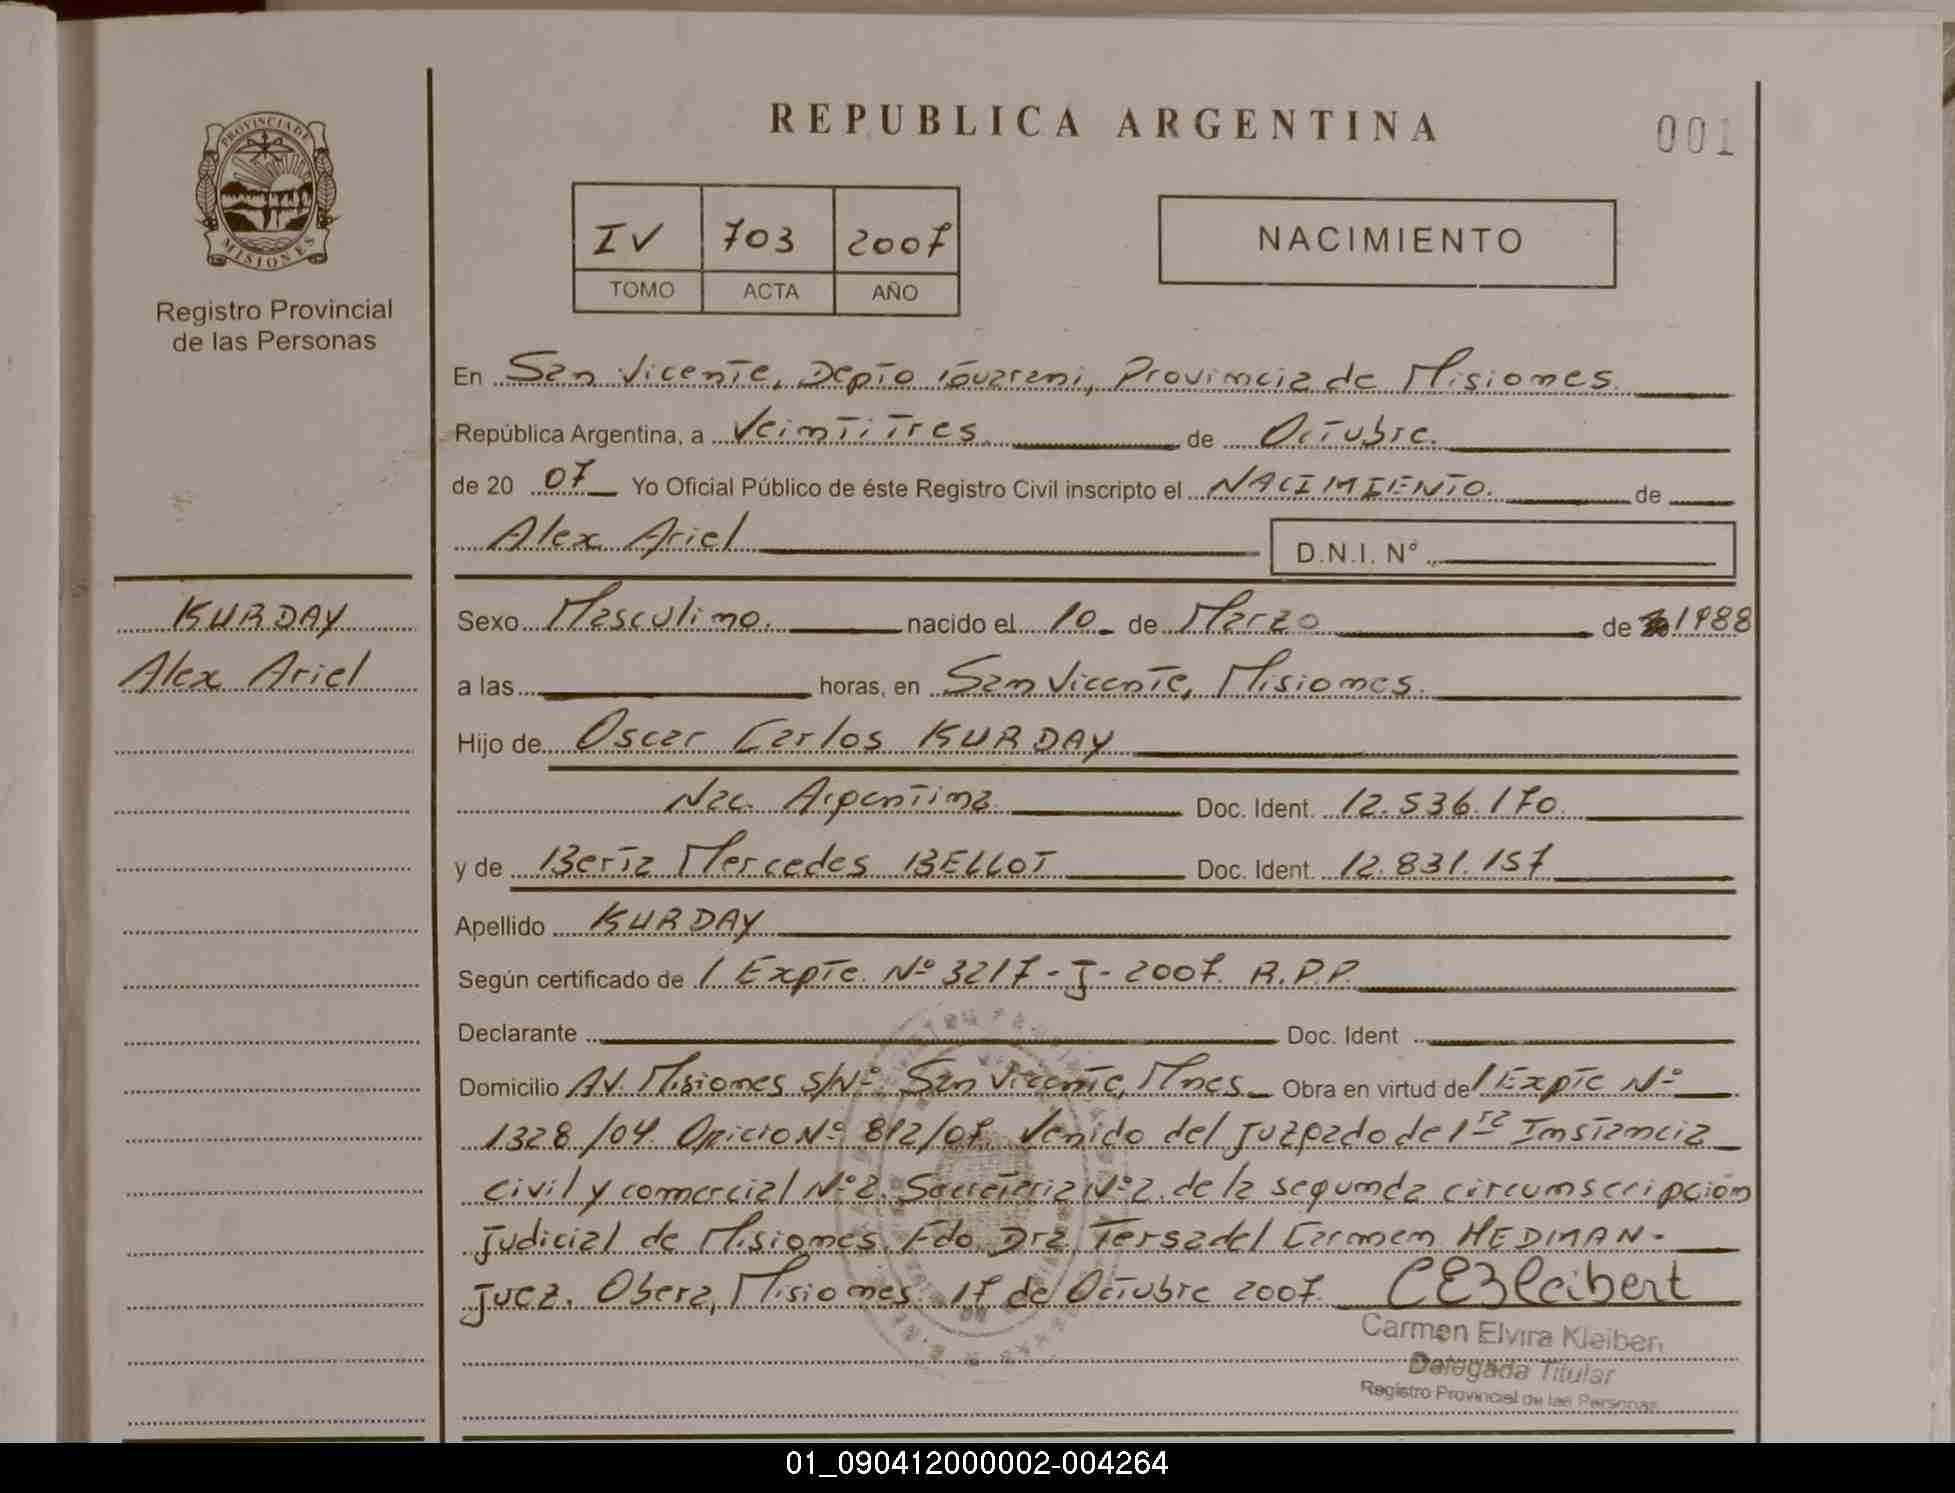 PROVINCIA DE
MISIONES
Registro Provincial
de las Personas
KURDAY
Alex Ariel
REPUBLICA ARGENTINA
001
IV 703 2007
TOMO ACTA AÑO
NACIMIENTO
En San Vicente, Depto Guarani, Provincia de Misiones.
República Argentina, a Veintitres. de Octubre.
de 20 07 Yo Oficial Público de éste Registro Civil inscripto el NACIMIENTO. de
Alex Ariel D.N.I. N°
Sexo Masculino. nacido el 10 de Marzo de 1988
a las horas, en San Vicente, Misiones.
Hijo de Oscar Carlos KURDAY
Nac. Argentina Doc. Ident. 12.536.170.
y de Berta Mercedes BELLOT Doc. Ident. 12.831.157
Apellido KURDAY
Según certificado de / Expte. Nº 3217-J-2007. R.P.P.
Declarante Doc. Ident
Domicilio AV. Misiones S/Nº San Vicente, Mnes Obra en virtud de / Expte Nº
1328/04 Oficio Nº 812/07. Venido del Juzgado de 1ra Instancia
Civil y comercial Nº2. Secretaria Nº2. de la segunda circunscripción
Judicial de Misiones Fdo. Dra. Tersa del Carmen HEDMAN.
Juez. Obera, Misiones 17 de Octubre 2007. CEKleibert
Carmen Elvira Kleiber
Delegada Titular
Registro Provincial de las Personas
01_090412000002-004264